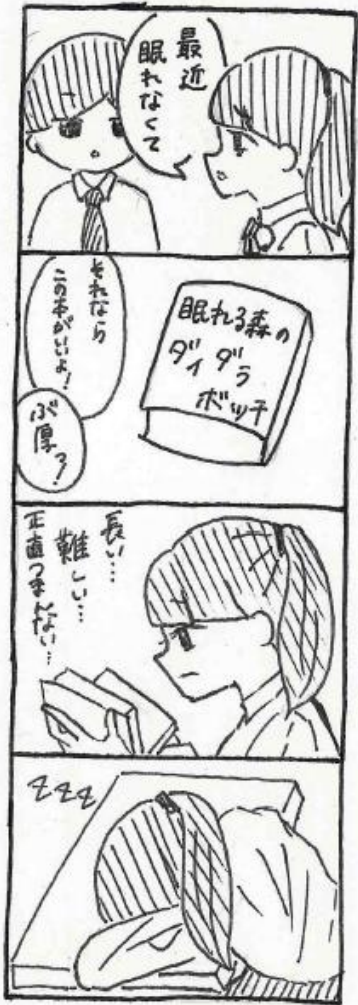 最近
眠れなくて
それなら
この本がいいよ!
ぶ厚っ!
眠れる森の
ダイダラ
ボッチ
長い…
難しい…
正直つまんない…
zzz